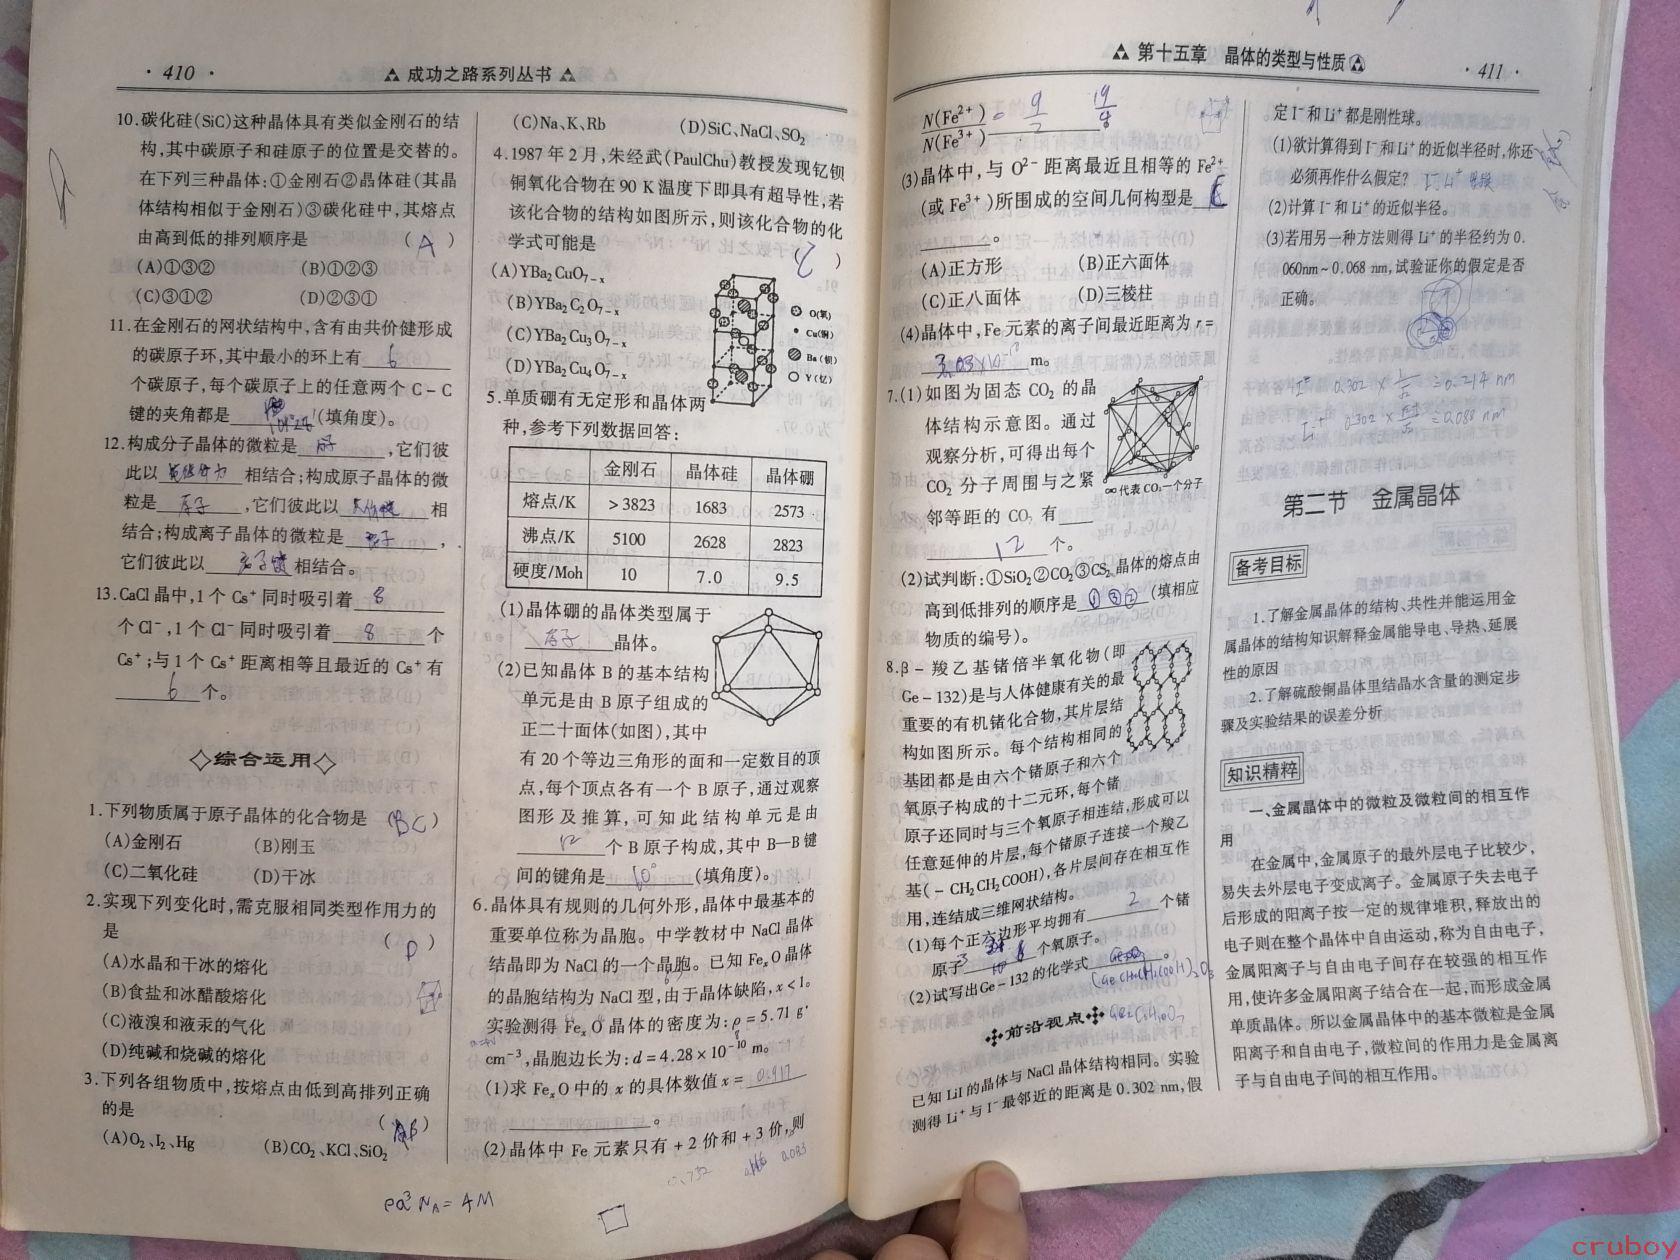 · 410 ·
成功之路系列丛书
10.碳化硅(SiC)这种晶体具有类似金刚石的结
构,其中碳原子和硅原子的位置是交替的。
在下列三种晶体:①金刚石②晶体硅(其晶
体结构相似于金刚石)③碳化硅中,其熔点
由高到低的排列顺序是 ( A )
(A)①③② (B)①②③
(C)③①② (D)②③①
11.在金刚石的网状结构中,含有由共价健形成
的碳原子环,其中最小的环上有 6
个碳原子,每个碳原子上的任意两个 C－C
键的夹角都是 (填角度)。
12.构成分子晶体的微粒是 ,它们彼
此以 相结合;构成原子晶体的微
粒是 原子 ,它们彼此以 共价键 相
结合;构成离子晶体的微粒是 离子 ,
它们彼此以 离子键 相结合。
13.CaCl 晶中,1 个 Cs⁺ 同时吸引着 8
个 Cl⁻,1 个 Cl⁻ 同时吸引着 8 个
Cs⁺;与 1 个 Cs⁺ 距离相等且最近的 Cs⁺ 有
6 个。
◇综合运用◇
1.下列物质属于原子晶体的化合物是 ( BC )
(A)金刚石 (B)刚玉
(C)二氧化硅 (D)干冰
2.实现下列变化时,需克服相同类型作用力的
是 ( D )
(A)水晶和干冰的熔化
(B)食盐和冰醋酸熔化
(C)液溴和液汞的气化
(D)纯碱和烧碱的熔化
3.下列各组物质中,按熔点由低到高排列正确
的是 ( B )
(A)O₂、I₂、Hg (B)CO₂、KCl、SiO₂
ρa³ N_A = 4M
(C)Na、K、Rb (D)SiC、NaCl、SO₂
4.1987 年 2 月,朱经武(PaulChu)教授发现钇钡
铜氧化合物在 90 K 温度下即具有超导性,若
该化合物的结构如图所示,则该化合物的化
学式可能是 ( C )
(A)YBa₂CuO₇₋ₓ
(B)YBa₂C₂O₇₋ₓ
(C)YBa₂Cu₃O₇₋ₓ
(D)YBa₂Cu₄O₇₋ₓ
O(氧)
Cu(铜)
Ba(钡)
Y(钇)
5.单质硼有无定形和晶体两
种,参考下列数据回答:
金刚石 晶体硅 晶体硼
熔点/K ＞3823 1683 2573
沸点/K 5100 2628 2823
硬度/Moh 10 7.0 9.5
(1)晶体硼的晶体类型属于
原子 晶体。
(2)已知晶体 B 的基本结构
单元是由 B 原子组成的
正二十面体(如图),其中
有 20 个等边三角形的面和一定数目的顶
点,每个顶点各有一个 B 原子,通过观察
图形及推算,可知此结构单元是由
12 个 B 原子构成,其中 B—B 键
间的键角是 60° (填角度)。
6.晶体具有规则的几何外形,晶体中最基本的
重要单位称为晶胞。中学教材中 NaCl 晶体
结晶即为 NaCl 的一个晶胞。已知 FeₓO 晶体
的晶胞结构为 NaCl 型,由于晶体缺陷,x＜1。
实验测得 FeₓO 晶体的密度为:ρ＝5.71 g·
cm⁻³,晶胞边长为:d＝4.28×10⁻¹⁰ m。
(1)求 FeₓO 中的 x 的具体数值 x＝ 0.917
。
(2)晶体中 Fe 元素只有＋2 价和＋3 价,则
0.732
0.083
第十五章 晶体的类型与性质
· 411 ·
N(Fe²⁺)
N(Fe³⁺)
(3)晶体中,与 O²⁻ 距离最近且相等的 Fe²⁺
(或 Fe³⁺)所围成的空间几何构型是 C
。
(A)正方形 (B)正六面体
(C)正八面体 (D)三棱柱
(4)晶体中,Fe 元素的离子间最近距离为 r＝
m。
7.(1)如图为固态 CO₂ 的晶
体结构示意图。通过
观察分析,可得出每个
CO₂ 分子周围与之紧
邻等距的 CO₂ 有
12 个。
代表 CO₂一个分子
(2)试判断:①SiO₂②CO₂③CS₂ 晶体的熔点由
高到低排列的顺序是 ①③② (填相应
物质的编号)。
8.β－羧乙基锗倍半氧化物(即
Ge－132)是与人体健康有关的最
重要的有机锗化合物,其片层结
构如图所示。每个结构相同的
基团都是由六个锗原子和六个
氧原子构成的十二元环,每个锗
原子还同时与三个氧原子相连结,形成可以
任意延伸的片层,每个锗原子连接一个羧乙
基(－CH₂CH₂COOH),各片层间存在相互作
用,连结成三维网状结构。
(1)每个正六边形平均拥有 2 个锗
原子 3 个氧原子。
(2)试写出Ge－132的化学式 。
前沿视点
已知 LiI 的晶体与 NaCl 晶体结构相同。实验
测得 Li⁺ 与 I⁻ 最邻近的距离是 0.302 nm,假
定 I⁻ 和 Li⁺ 都是刚性球。
(1)欲计算得到 I⁻ 和 Li⁺ 的近似半径时,你还
必须再作什么假定?
(2)计算 I⁻ 和 Li⁺ 的近似半径。
(3)若用另一种方法则得 Li⁺ 的半径约为 0.
060nm~0.068 nm,试验证你的假定是否
正确。
第二节 金属晶体
备考目标
1.了解金属晶体的结构、共性并能运用金
属晶体的结构知识解释金属能导电、导热、延展
性的原因
2.了解硫酸铜晶体里结晶水含量的测定步
骤及实验结果的误差分析
知识精粹
一、金属晶体中的微粒及微粒间的相互作
用
在金属中,金属原子的最外层电子比较少,
易失去外层电子变成离子。金属原子失去电子
后形成的阳离子按一定的规律堆积,释放出的
电子则在整个晶体中自由运动,称为自由电子,
金属阳离子与自由电子间存在较强的相互作
用,使许多金属阳离子结合在一起,而形成金属
单质晶体。所以金属晶体中的基本微粒是金属
阳离子和自由电子,微粒间的作用力是金属离
子与自由电子间的相互作用。
cruboy